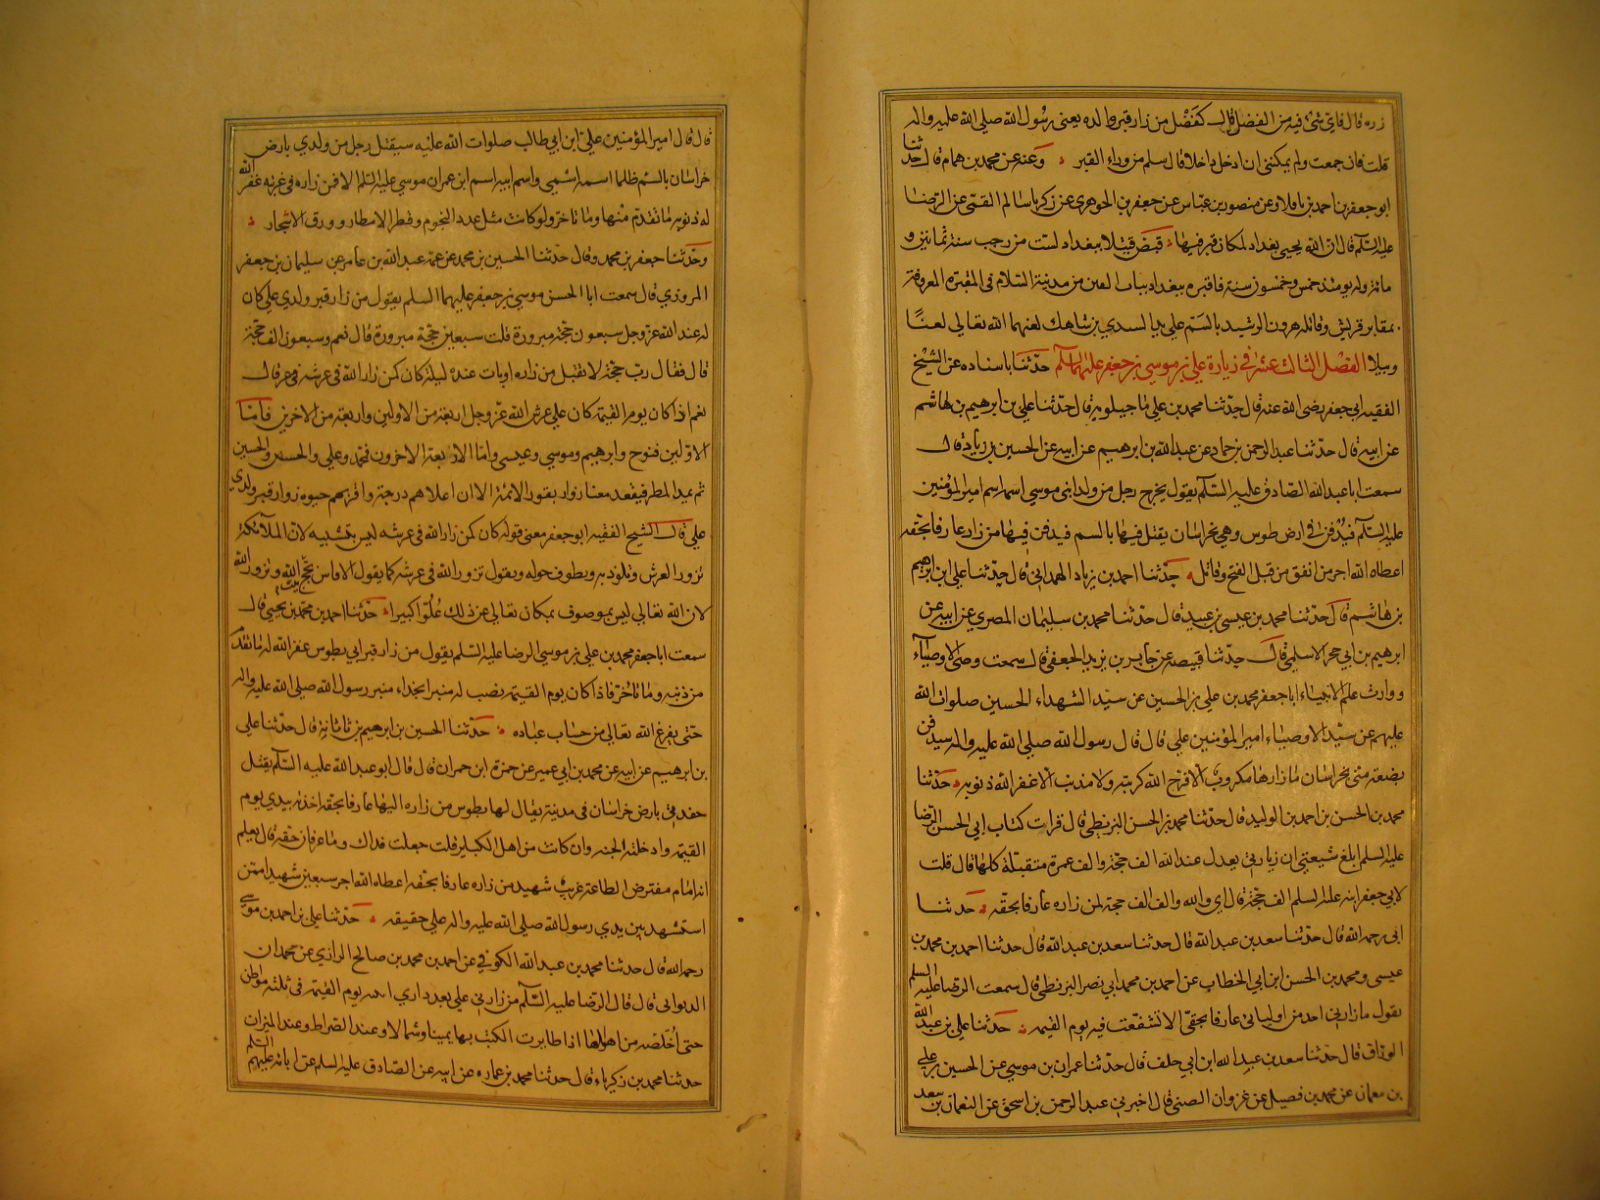 زره قال فاي شئ فيه من الفضل قال كفضل من زار قبر والده يعني رسول الله صلى الله عليه واله
قلت فان خفت ولم يمكنني ان ادخل داخلا قال سلم من وراء القبر وعنه عن محمد بن همام قال حدثنا
ابو جعفر بن احمد بن عن منصور بن عباس عن جعفر بن الجوهري عن زكريا بن ادم القمي عن الرضا
عليه السلم قال ان الله يحيي بغداد لمكان قبر فيها قبض قتيلا ببغداد لست من رجب سنة ثمانين و
مائة وله يومئذ خمس وخمسون سنة فاقبره ببغداد بباب من مدينة السلام في المقبرة المعروفة
بمقابر قريش وقاتله هرون الرشيد بالسم على يد السندي بن شاهك لعنهما الله تعالى لعنًا
وبيلا الفصل الثالث عشر في زيارة علي بن موسى بن جعفر عليهما السلم حدثنا باسناده عن الشيخ
الفقيه ابي جعفر رضي الله عنه قال حدثنا محمد بن علي ماجيلويه قال حدثنا علي بن ابرهيم بن هاشم
عن ابيه قال حدثنا عبد الرحمن بن حماد عن عبد الله بن ابرهيم عن ابيه عن الحسين بن زياد قال
سمعت ابا عبد الله الصادق عليه السلم يقول يخرج رجل من ولد ابني موسى اسمه اسم امير المؤمنين
عليه السلم فيدفن في ارض طوس وهي بخراسان يقتل فيها بالسم فيدفن فيها من زاره عارفا بحقه
اعطاه الله اجر من انفق من قبل الفتح وقاتل حدثنا احمد بن زياد الهمداني قال حدثنا علي ابن ابرهيم
بن هاشم قال حدثنا محمد بن عيسى بن عبيد قال حدثنا محمد بن سليمان المصري عن ابيه عن
ابرهيم بن ابي حجر الاسلمي قال حدثنا قبيصه عن جابر بن يزيد الجعفي قال سمعت وصي الاوصياء
ووارث علم الانبياء ابا جعفر محمد بن علي بن الحسين عن سيد الشهداء الحسين صلوات الله
عليهم عن سيد الاوصياء امير المؤمنين علي قال قال رسول الله صلى الله عليه واله سيدفن
بضعة مني بخراسان ما زارها مكروب الا فرج الله كربته ولا مذنب الا غفر الله ذنوبه حدثنا
محمد بن الحسن بن احمد بن الوليد قال حدثنا محمد بن الحسن البزنطي قال قرات كتاب ابي الحسن الرضا
عليه السلم ابلغ شيعتي ان زيارتي يعدل عند الله الف حجة والف عمرة متقبلة كلها قال قلت
لابي جعفر ابنه عليه السلم الف حجة قال اي والله والف الف حجة لمن زاره عارفا بحقه حدثنا
ابي رحمه الله قال حدثنا سعد بن عبد الله قال حدثنا سعد بن عبد الله قال حدثنا احمد بن محمد بن
عيسى ومحمد بن الحسن ابن ابي الخطاب عن احمد بن محمد ابي نصر البزنطي قال سمعت الرضا عليه السلم
يقول ما زارني احد من اوليائي عارفا بحقي الا تشفعت فيه يوم القيمه حدثنا علي بن عبد الله
الوراق قال حدثنا سعد بن عبد الله ابن ابي خلف قال حدثنا عمران بن موسى عن الحسين بن علي
بن نعمان عن محمد بن فضيل عن غزوان الضبي قال اخبرني عبد الرحمن بن اسحق عن النعمان بن سعد
قال قال امير المؤمنين علي ابن ابي طالب صلوات الله عليه سيقتل رجل من ولدي بارض
خراسان بالسم ظلما اسمه اسمي واسم ابيه اسم ابن عمران موسى عليه السلم الا فمن زاره في غربته غفر الله
له ذنوبه ما تقدم منها وما تاخر ولو كانت مثل عدد النجوم وقطر الامطار وورق الاشجار
وحدثنا جعفر بن محمد وقال حدثنا الحسين بن محمد عن عمه عبد الله بن عامر عن سليمان بن جعفر
المروزي قال سمعت ابا الحسن موسى بن جعفر عليهما السلم يقول من زار قبر ولدي علي كان
له عند الله عز وجل سبعون حجة مبرورة قلت سبعين حجة مبرورة قال نعم وسبعون الف حجة
قال فقال رب حجة لا تقبل من زاره او بات عنده ليلة كان كمن زار الله في عرشه في عرش قال
نعم اذا كان يوم القيمة كان على عرش الله عز وجل اربعة من الاولين واربعة من الاخرين فاما
الاولين فنوح وابرهيم وموسى وعيسى واما الاربعة الاخرون فمحمد وعلي والحسن والحسين
ثم يمد المطمر فيقعد معنا زوار بقور الائمة الا ان اعلاهم درجة واقربهم حبوه زوار قبر ولدي
علي قال الشيخ الفقيه ابو جعفر معنى قوله كان كمن زار الله في عرشه ليس بتشبيه لان الملائكة
تزور العرش وتلوذ به ويطوف حوله ويقول نزور الله في عرشه كما يقول الناس نحج بيت الله ونزور الله
لان الله تعالى ليس بموصوف بمكان تعالى عن ذلك علوا كبيرا حدثنا احمد بن محمد بن يحيى قال
سمعت ابا جعفر محمد بن علي بن موسى الرضا عليه السلم يقول من زار قبر ابي بطوس غفر الله له ما تقدم
من ذنبه وما تاخر فاذا كان يوم القيمة نصب له منبر بحذاء منبر رسول الله صلى الله عليه واله
حتى يفرغ الله تعالى من حساب عباده حدثنا الحسين بن ابرهيم بن قال حدثنا علي
بن ابرهيم عن ابيه عن محمد بن ابي عمير عن حمزة ابن حمران قال قال ابو عبد الله عليه السلم يقتل
حفدتي بارض خراسان في مدينة يقال لها طوس من زاره اليها عارفا بحقه اخذته بيدي يوم
القيمة وادخلته الجنه وان كانت من اهل الكباير قلت جعلت فداك وما عرفان حقه قال يعلم
انه امام مفترض الطاعة غريب شهيد من زاره عارفا بحقه اعطاه الله اجر سبعين شهيدا ممن
استشهد بين يدي رسول الله صلى الله عليه واله على حقيقه حدثنا علي بن احمد بن موسى
رحمه الله قال حدثنا محمد بن عبد الله الكوفي عن احمد بن محمد بن صالح الرازي عن حمدان
الديواني قال قال الرضا عليه السلم من زارني على بعد داري اتيته يوم القيمة في ثلثة مواطن
حتى اخلصه من اهوالها اذا طايرت الكتب بها يمينا وشمالا وعند الصراط وعند الميزان
حدثنا محمد بن زكرياء قال حدثنا محمد بن عماره عن ابيه عن الصادق عليه السلم عن ابائه عليهم السلم